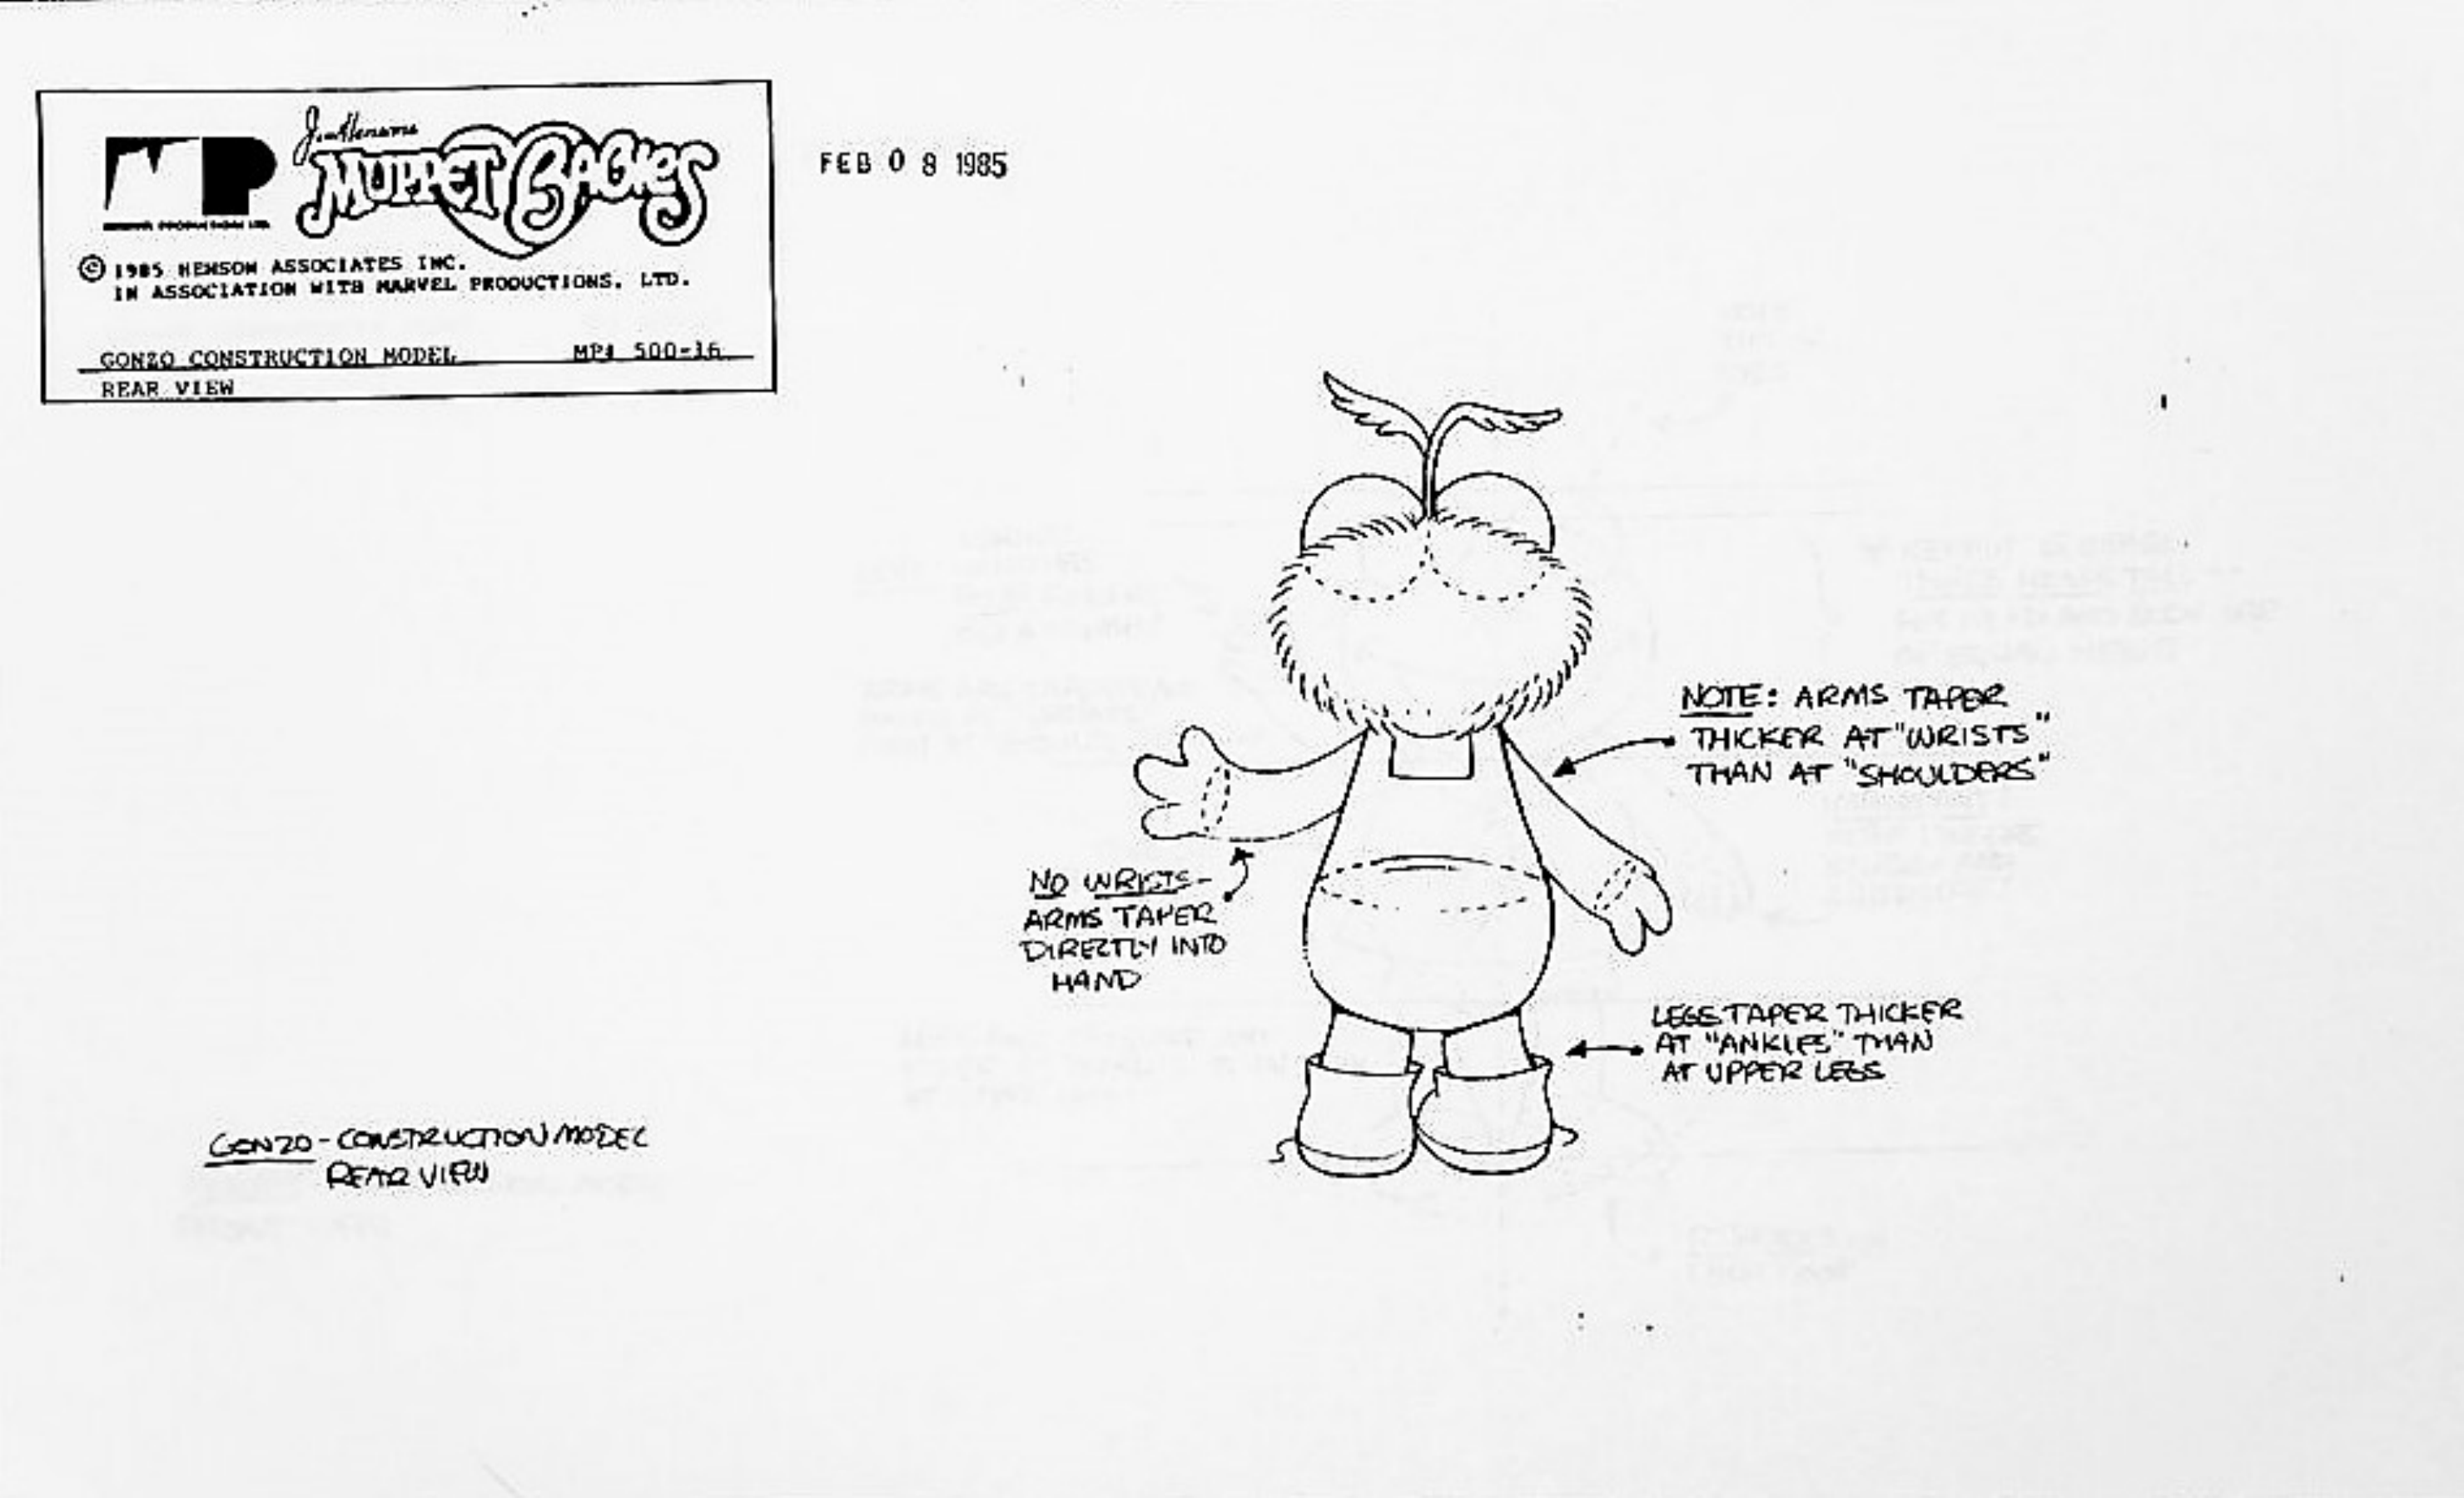 Jim Henson's
MUPPET BABIES
MP
© 1985 HENSON ASSOCIATES INC.
IN ASSOCIATION WITH MARVEL PRODUCTIONS, LTD.
GONZO CONSTRUCTION MODEL MP# 500-16
REAR VIEW
FEB 08 1985
NOTE: ARMS TAPER
THICKER AT "WRISTS"
THAN AT "SHOULDERS"
NO WRISTS-
ARMS TAPER
DIRECTLY INTO
HAND
LEGS TAPER THICKER
AT "ANKLES" THAN
AT UPPER LEGS
GONZO - CONSTRUCTION MODEL
REAR VIEW